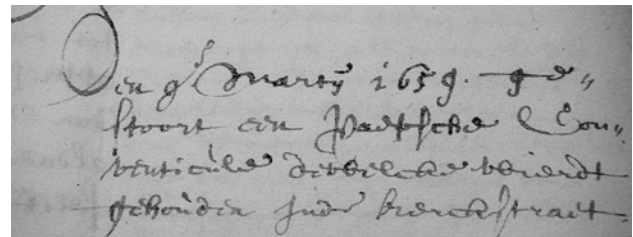 Den 9s Martÿ 1659. ge„
stoort een Paepsche Con„
venticule dewelcke wierdt
gehouden inde kerckstraet